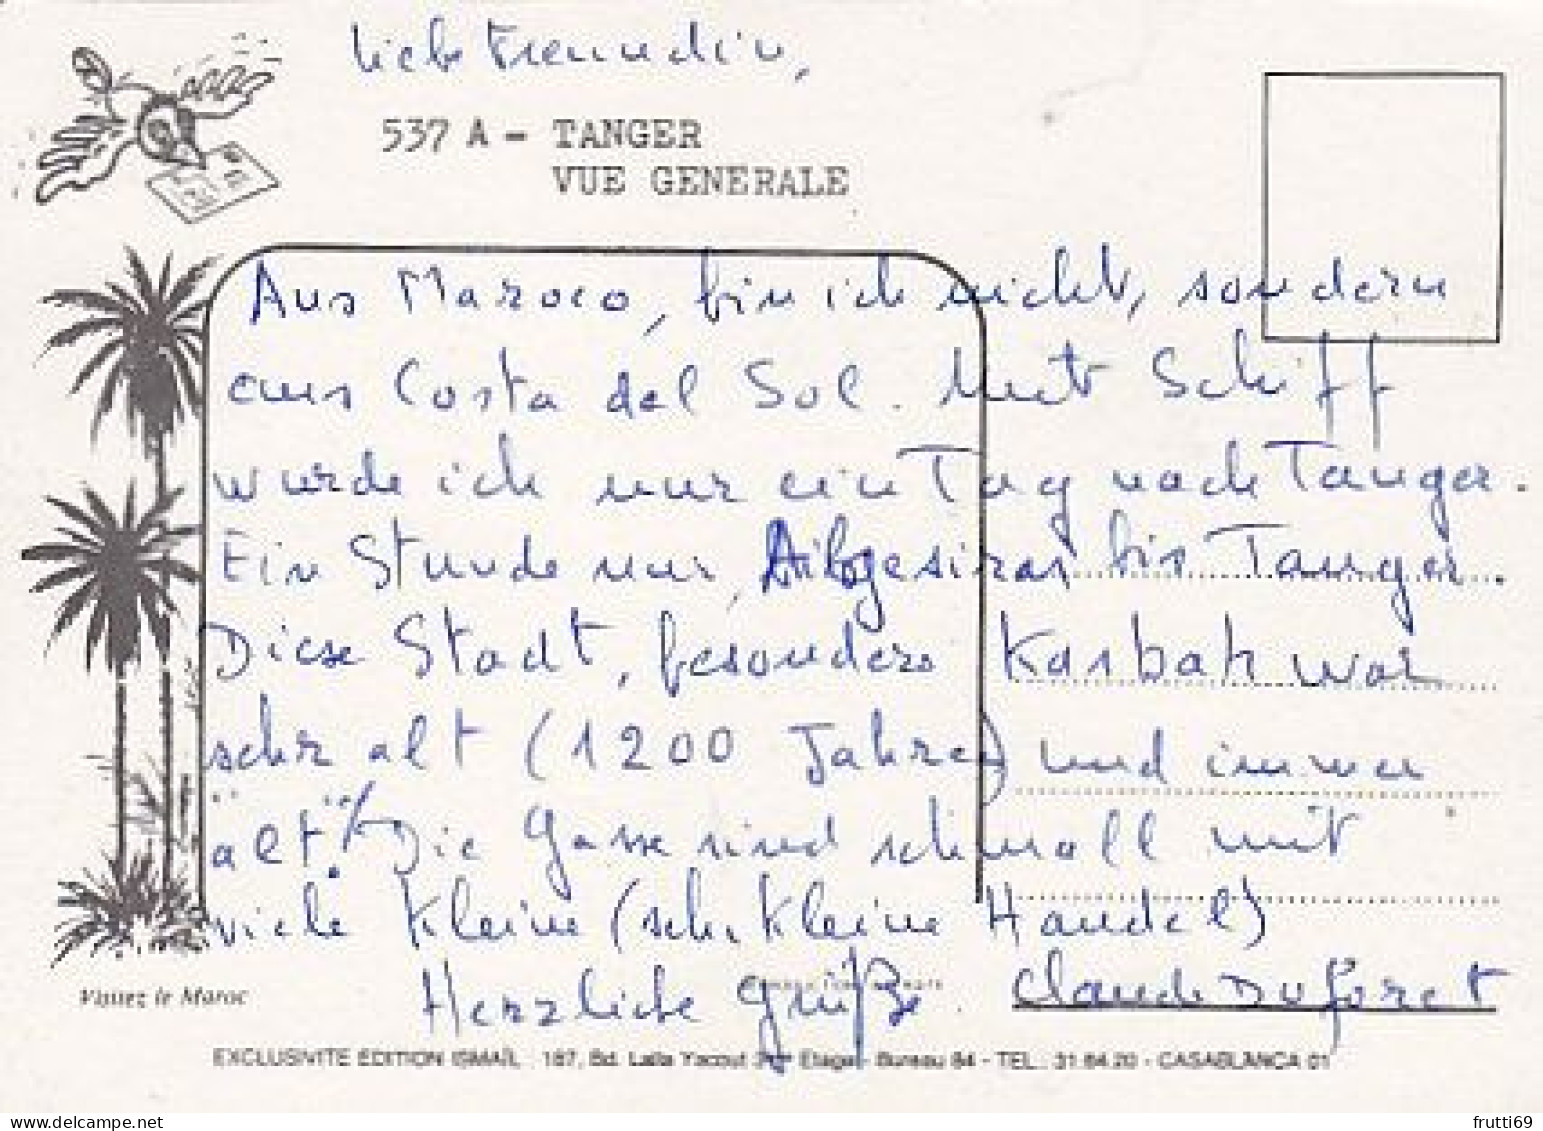 Liebe Freundin,
537 A - TANGER
VUE GENERALE
Aus Maroco, bin ich nicht, sondern
aus Costa del Sol. Mit Schiff
wurde ich nur ein Tag nach Tanger.
Ein Stunde nur, Albgesiras bis Tanger.
Diese Stadt, besonders Kasbah war
sehr alt (1200 Jahre) und immer
alt. Die Gasse sind schmall mit
viele kleine (sehr kleine Handel)
Herzliche Grüße. Claude Duforet
Visitez le Maroc
EXCLUSIVITE EDITION ISMAÏL : 187, Bd. Lalla Yacout Etage - Bureau 84 - TEL. : 31.64.20 - CASABLANCA 01
frutti69